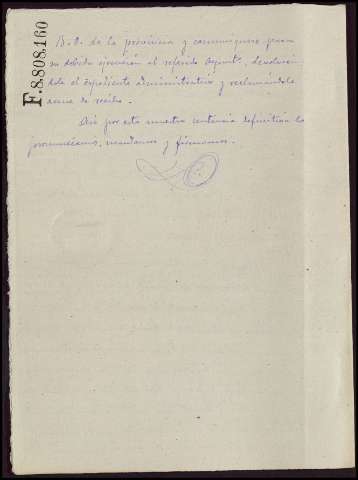 F.8.808.160
B.O. de la provincia y comuníquese para
su debida ejecución al referido Ayunt., devolvién
dole el expediente administrativo y reclamándole
acuse de recibo.
Así por esta nuestra sentencia definitiva lo
pronunciamos, mandamos y firmamos.